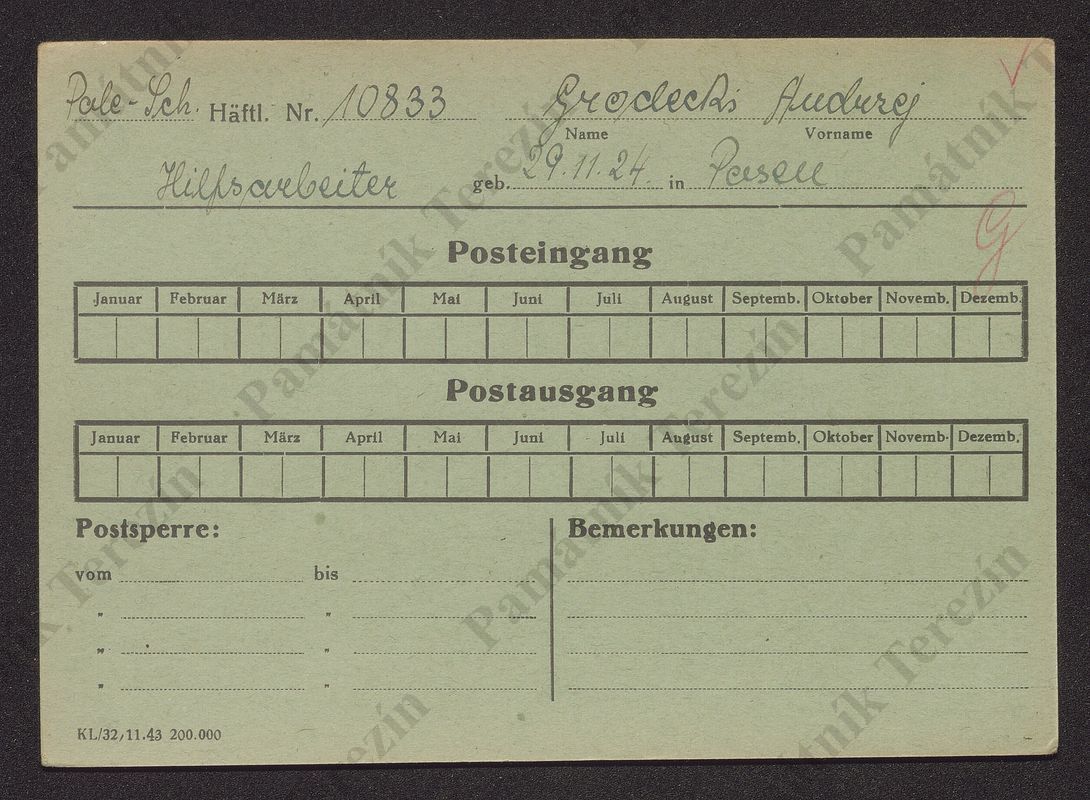 Pole-Sch. Häftl. Nr. 10833 Grodecki Andurej
Name Vorname
Hilfsarbeiter geb. 29.11.24 in Posen
G
Posteingang
Januar Februar März April Mai Juni Juli August Septemb. Oktober Novemb. Dezemb.
Postausgang
Januar Februar März April Mai Juni Juli August Septemb. Oktober Novemb. Dezemb.
Postsperre: Bemerkungen:
vom bis
" "
" "
" "
KL/32, 11.43 200.000
Památník Terezín
Památník Terezín
Památník Terezín
Památník Terezín